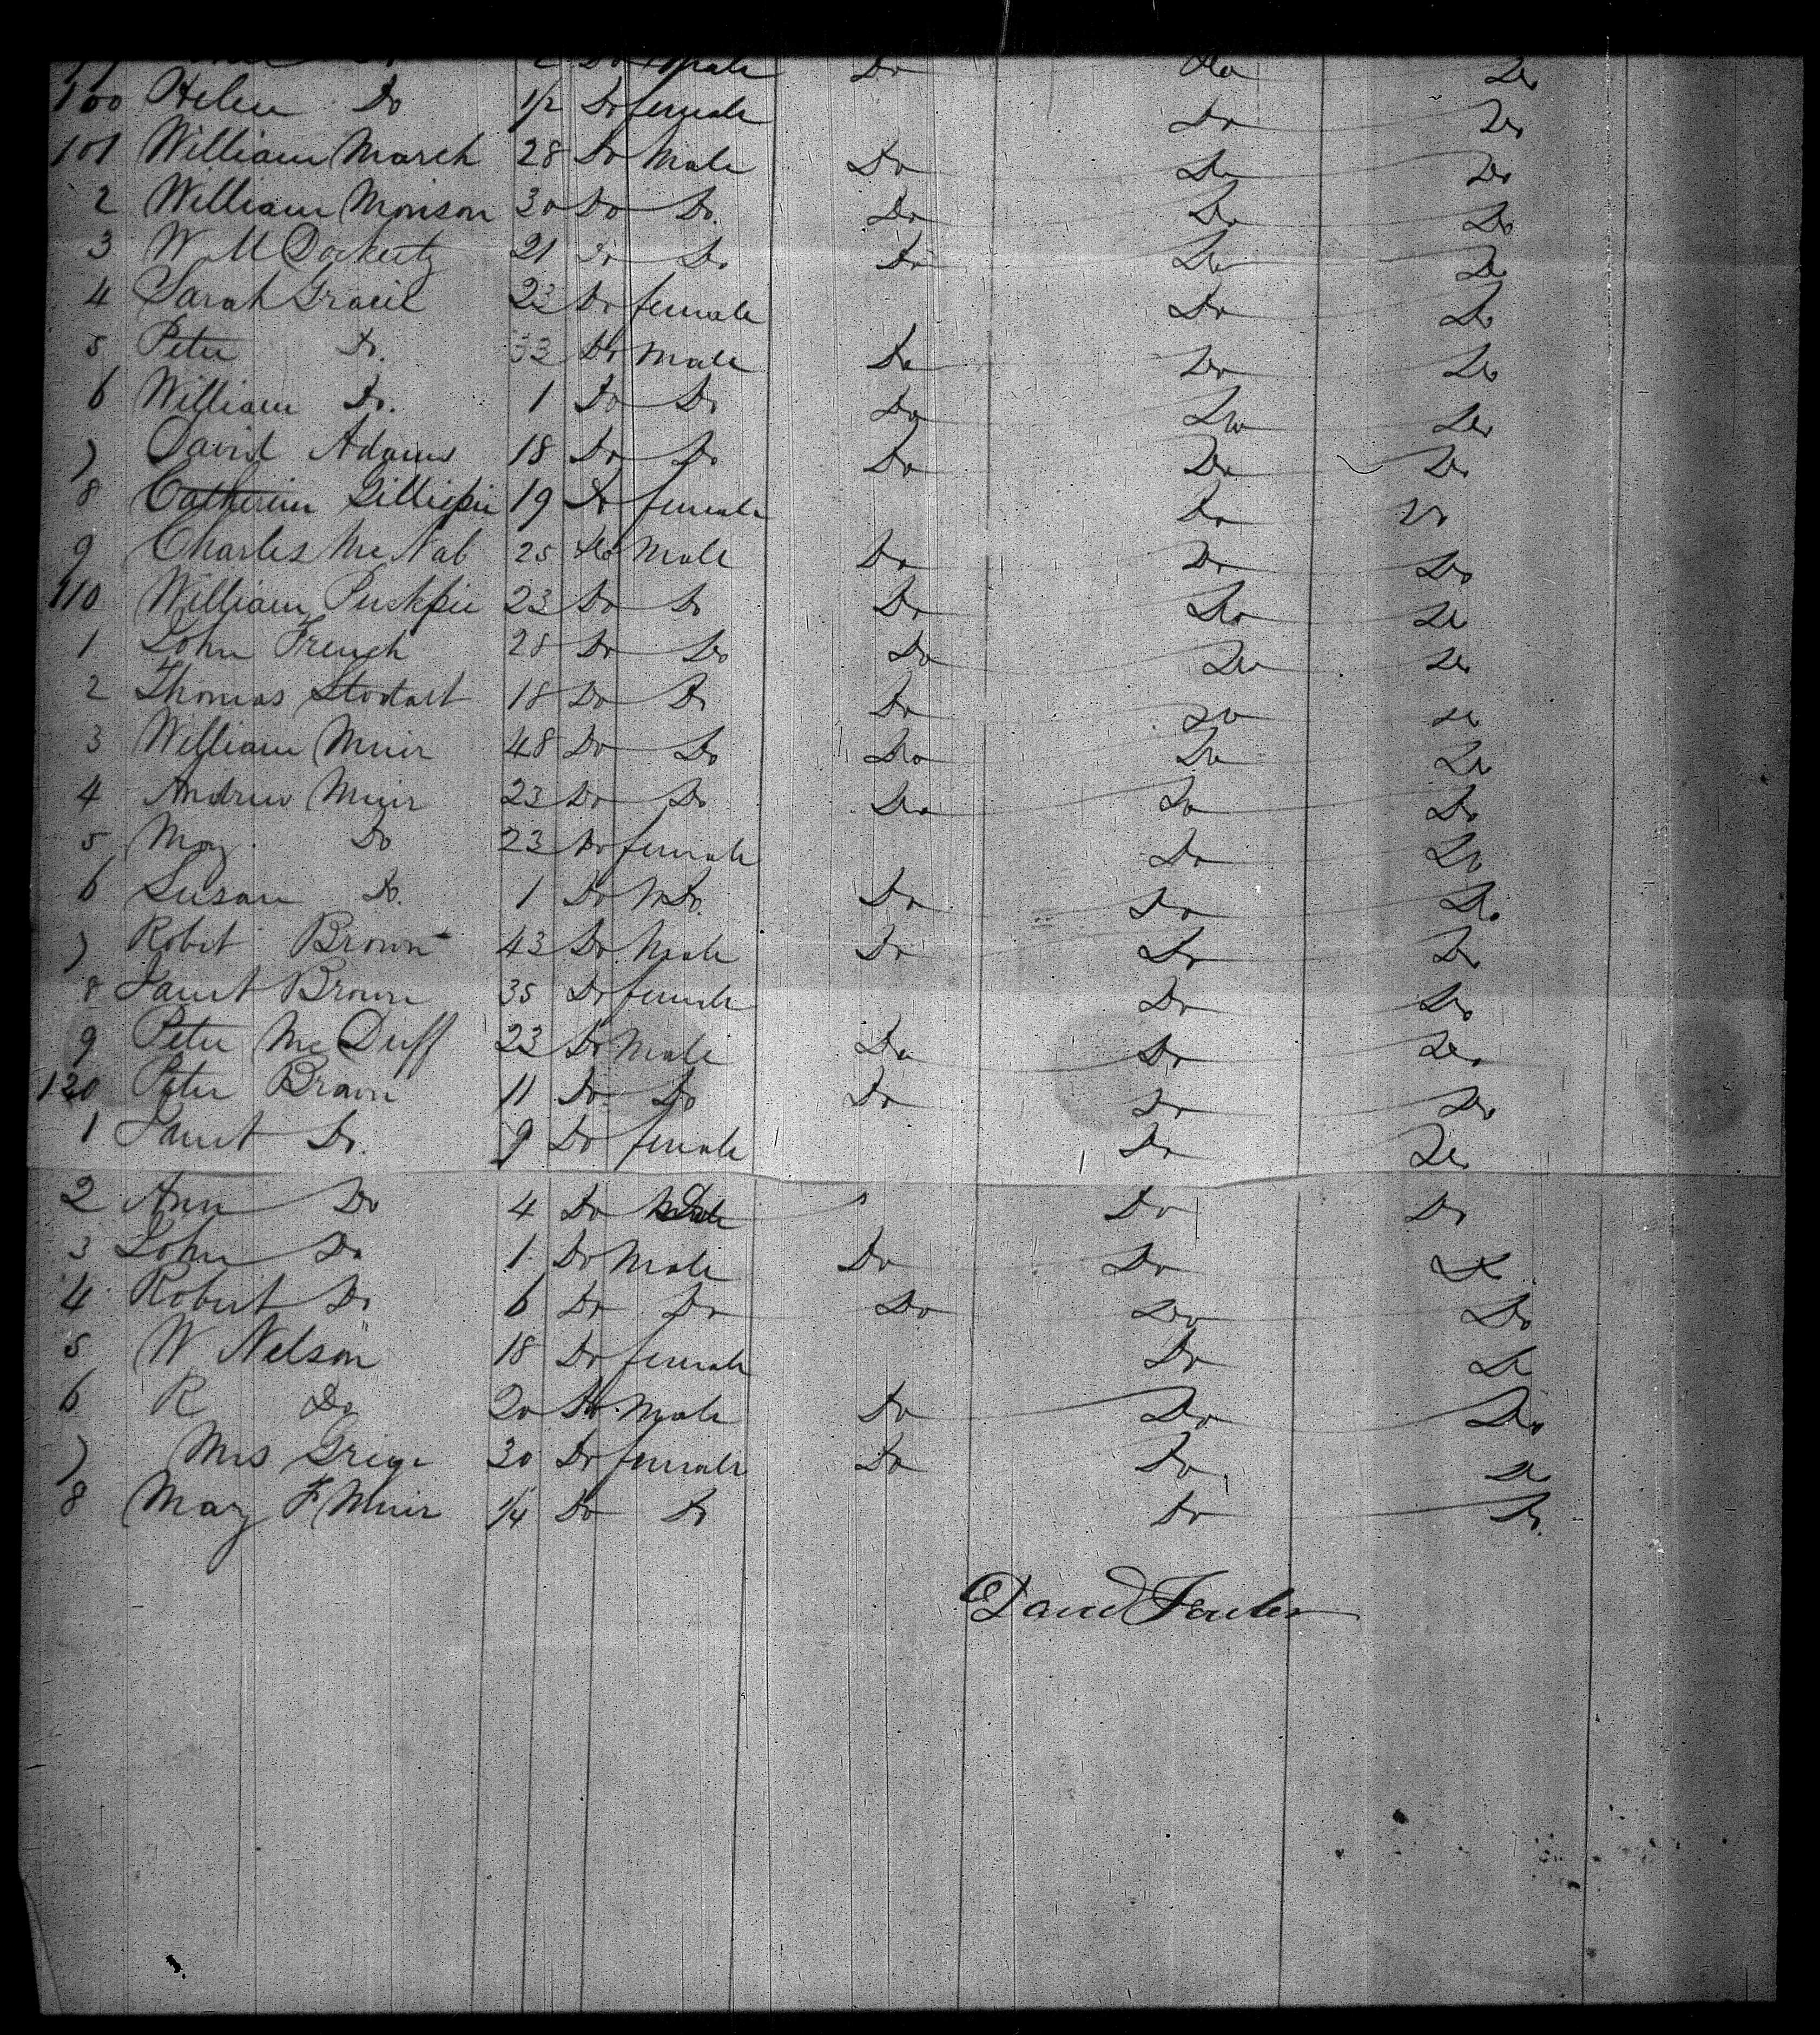 Do male Do Do Do
100 Helen Do 1/2 Do female Do Do
101 William March 28 Do Male Do Do Do
2 William Morison 30 Do Do. Do Do Do
3 W 21 Do Do Do Do Do
4 Sarah Gracie 23 Do female Do Do
5 Peter Do. 33 Do Male Do Do Do
6 William Do. 1 Do Do Do Do Do
7 David Adams 18 Do Do Do Do Do
8 Catherin Gillispie 19 Do female Do Do
9 Charles McNab 25 Do Male Do Do Do
110 William 23 Do Do Do Do Do
1 John French 28 Do Do Do Do Do
2 Thomas Stodart 18 Do Do Do Do Do
3 William Muir 48 Do Do Do Do Do
4 Andrew Muir 23 Do Do Do Do Do
5 May Do 23 Do female Do Do
6 Susan Do. 1 Do Do. Do Do Do
7 Robet Brown 43 Do Male Do Do Do
8 Janet Brown 35 Do female Do Do
9 Peter McDuff 23 Do Male Do Do Do
120 Peter Brown 11 Do Do Do Do Do
1 Janet Do. 9 Do female Do Do
2 Ann Do 4 Do Do Do Do
3 John Do 1 Do Male Do Do Do
4 Robert Do 6 Do Do Do Do Do
5 W Nelson 18 Do female Do Do
6 R Do 20 Do Male Do Do Do
7 Mrs 30 Do female Do Do Do
8 May F Muir 1/4 Do Do Do Do
David